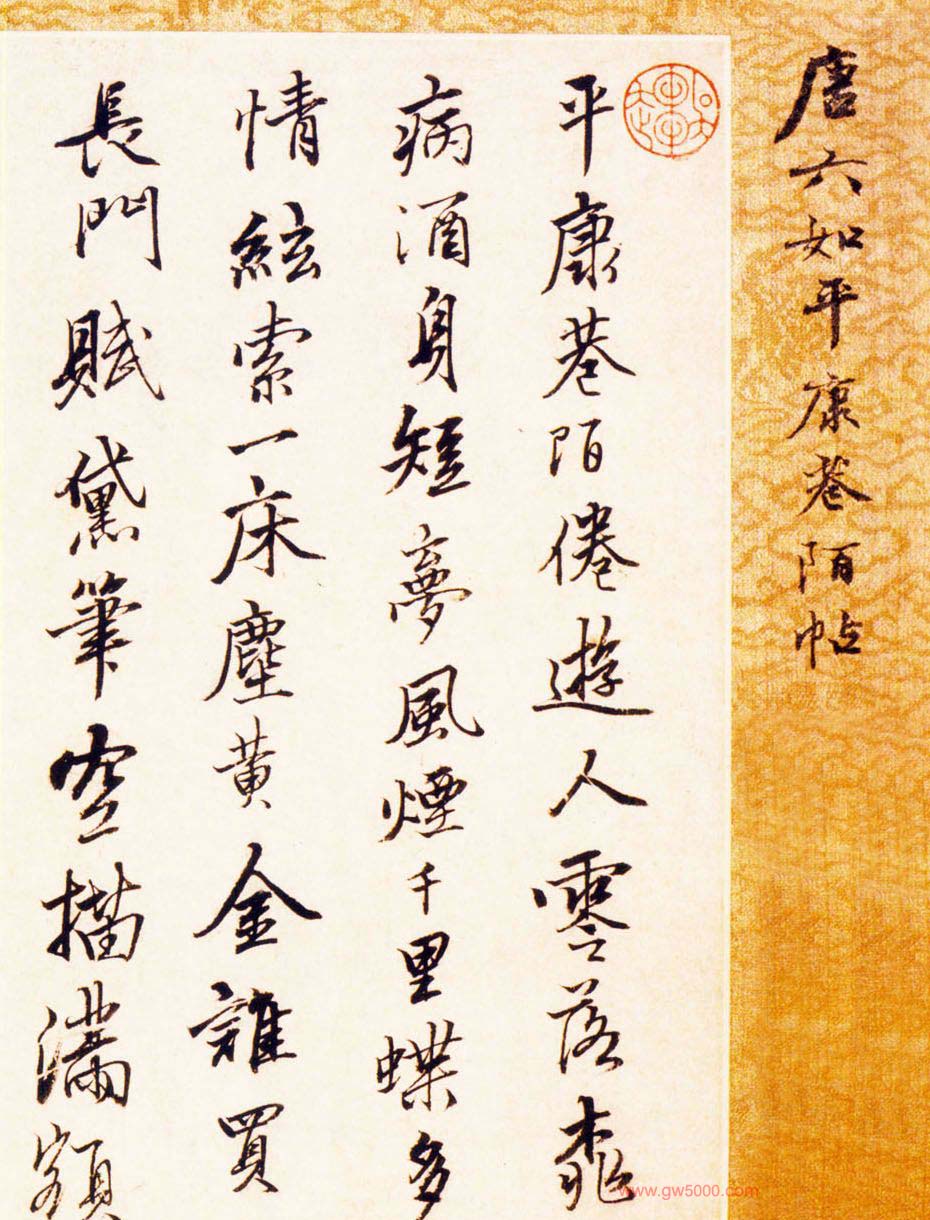 唐六如平康巷陌帖
平康巷陌倦遊人零落桃
病酒身短夢風煙千里蝶多
情絃索一床塵黃金誰買
長門賦黛筆空描滿額
www.gw5000.com